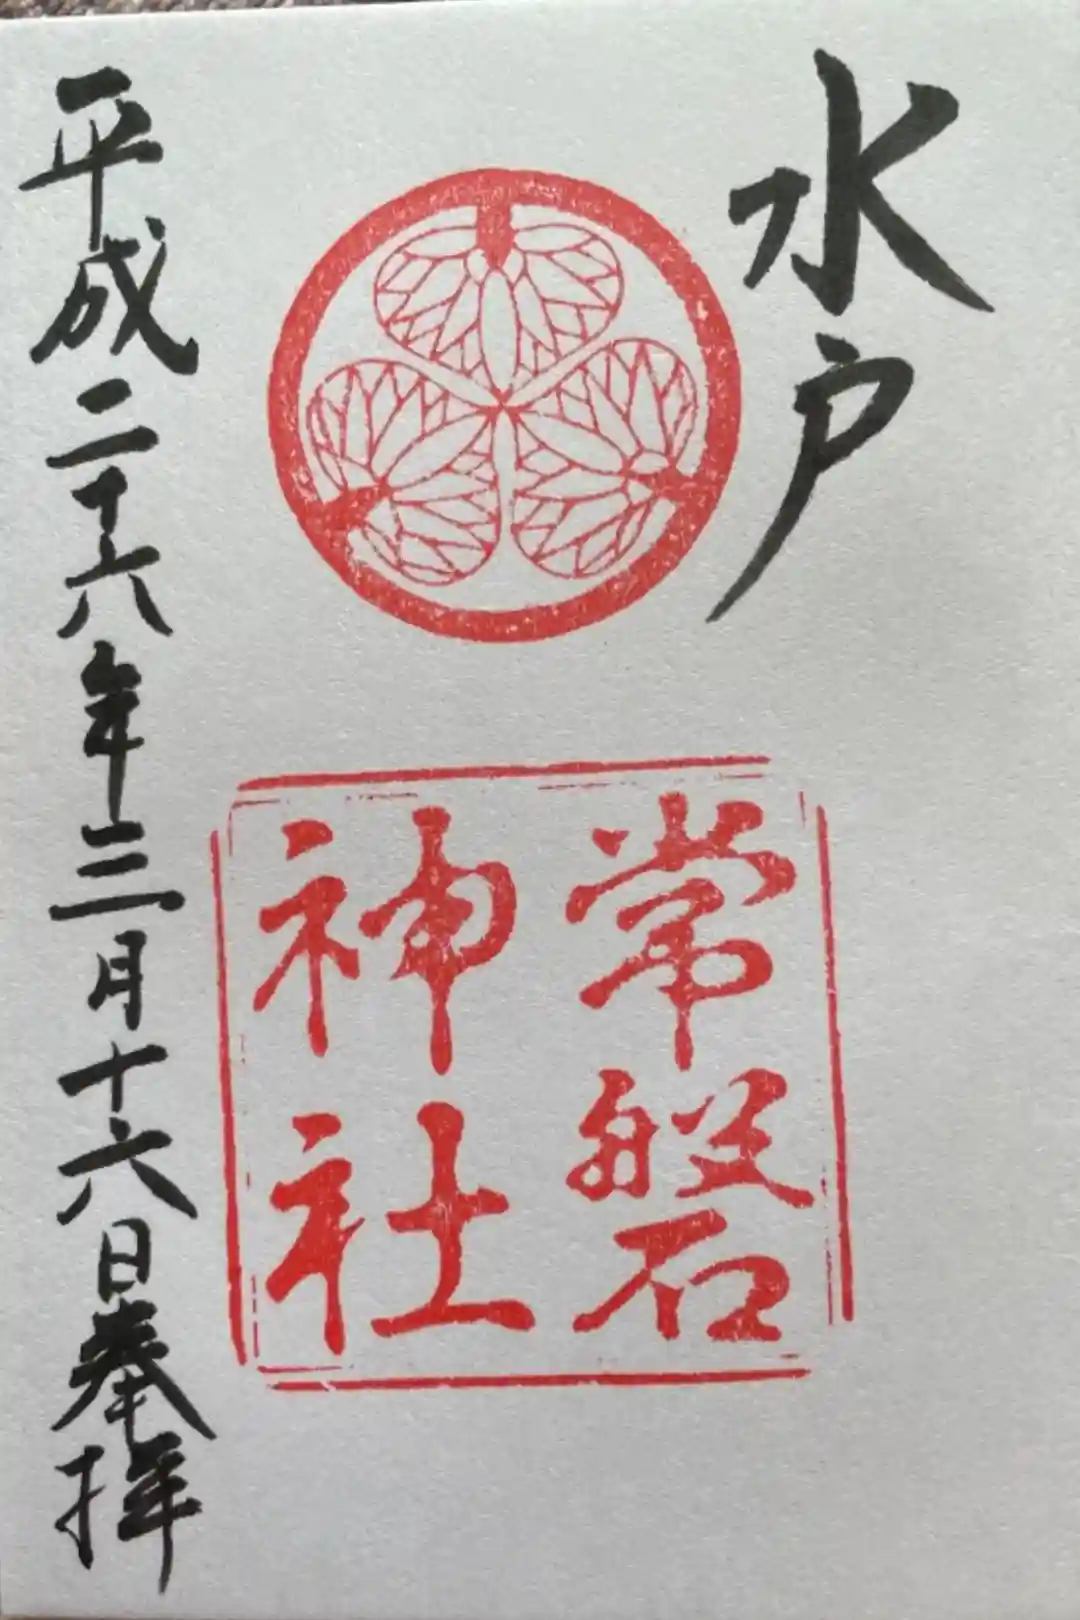 水戸
常磐
神社
平成二十六年三月十六日奉拝